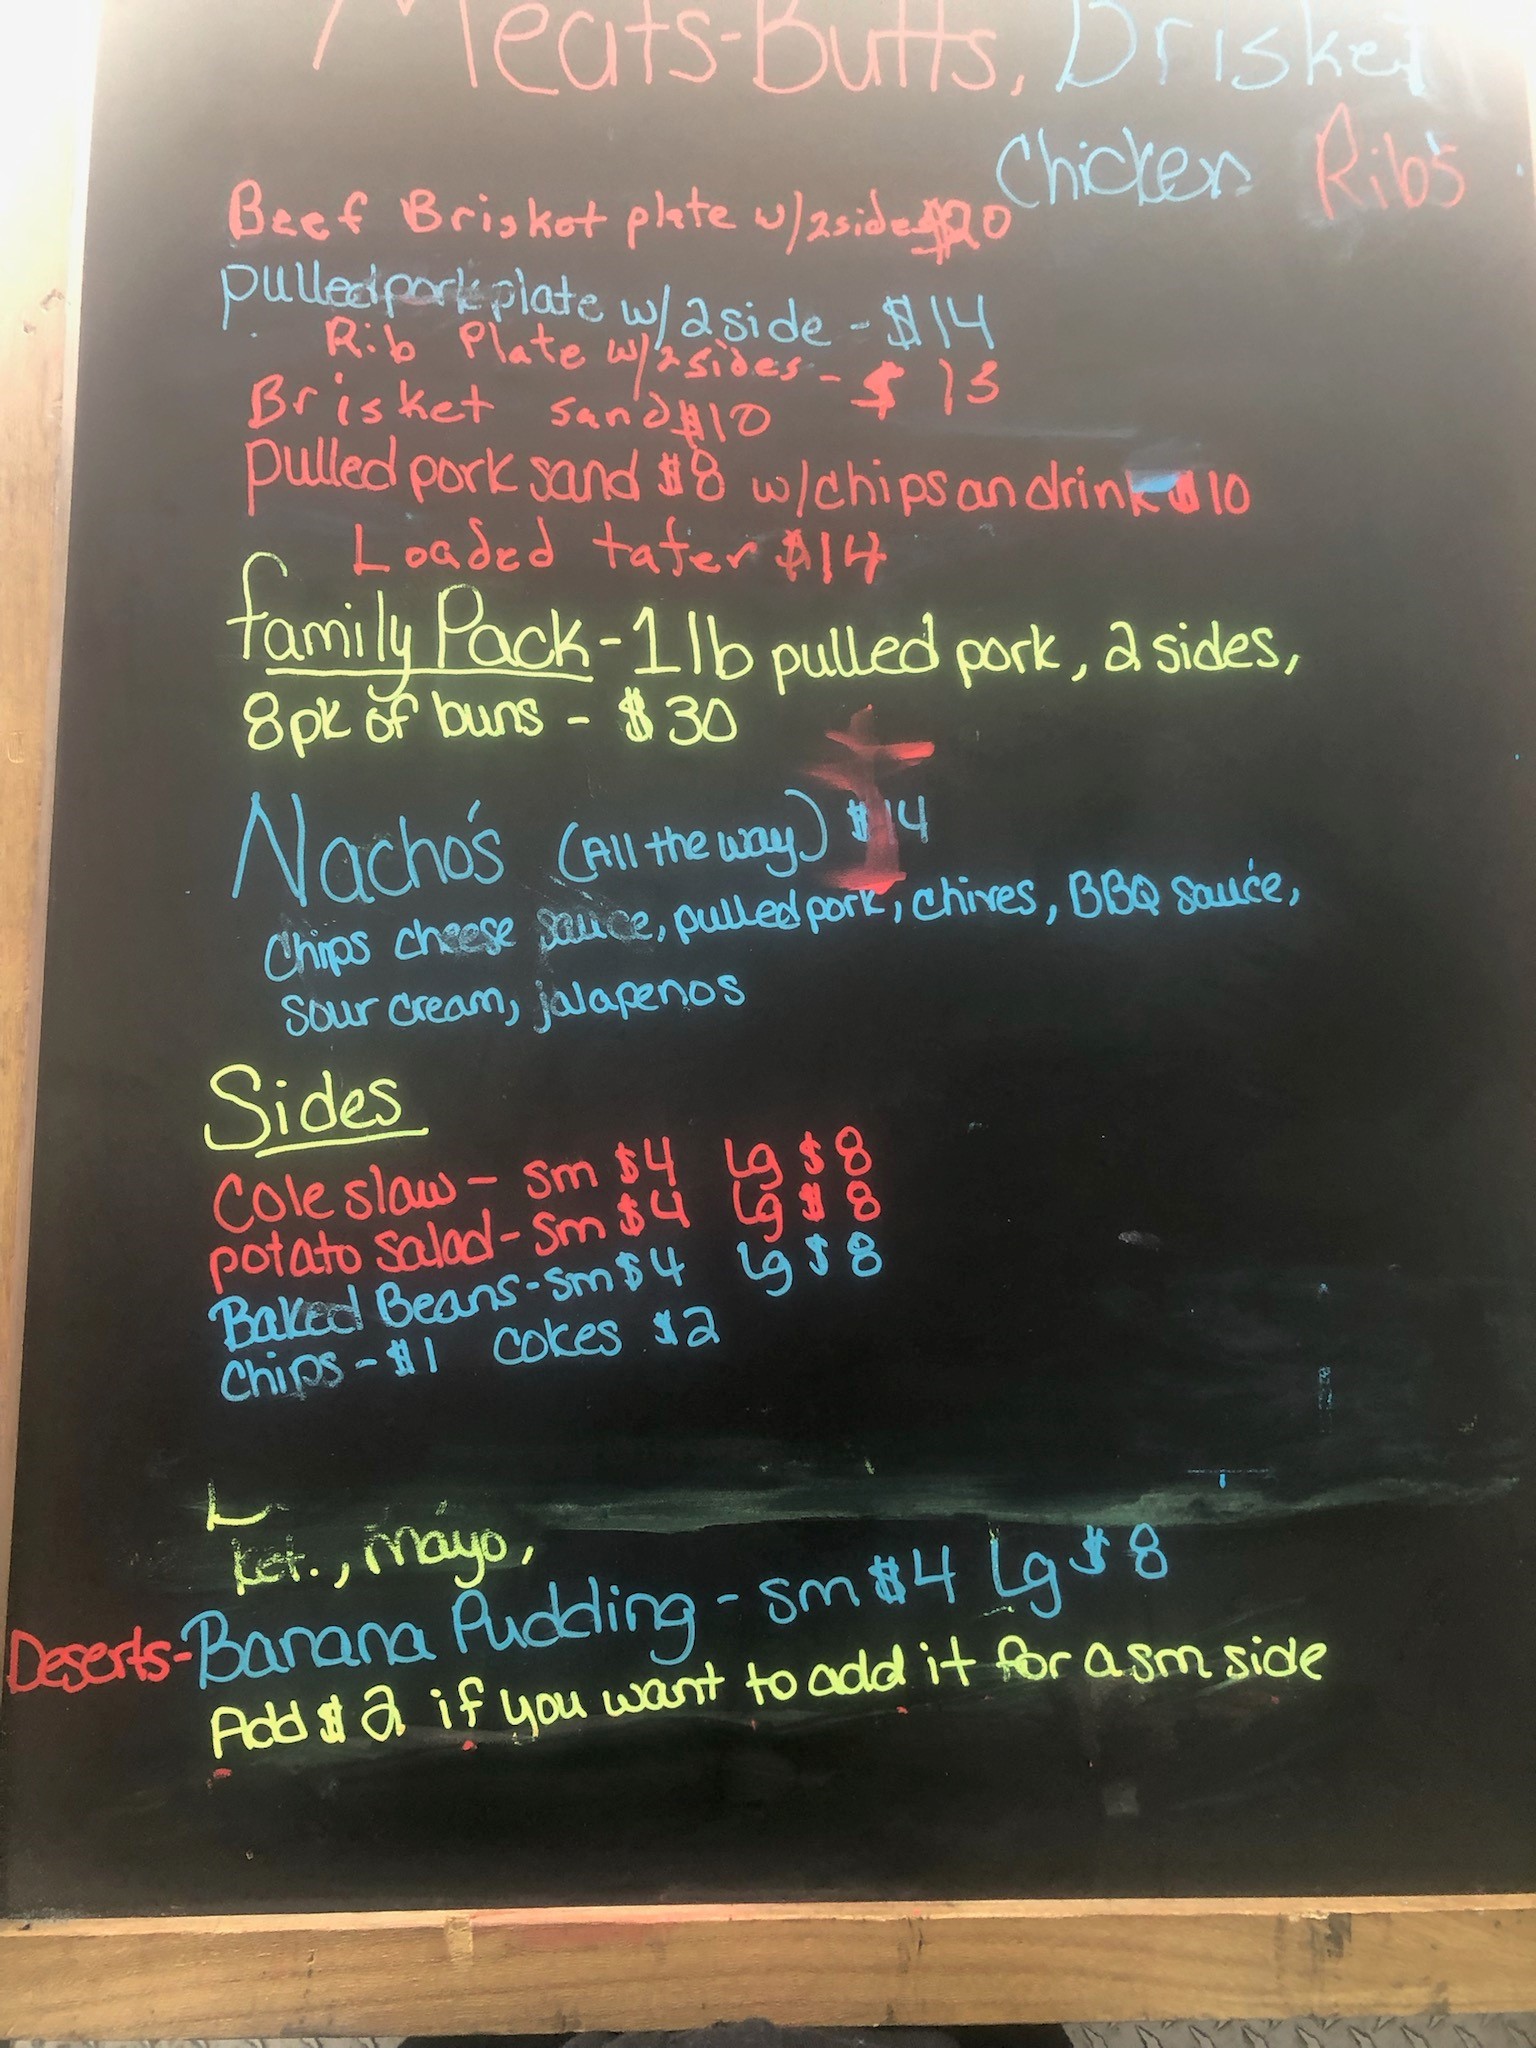 Meats-Butts, Brisket
Chicken Ribs
Beef Brisket plate w/2side $20
pulled pork plate w/2side - $14
Rib Plate w/2sides - $ 13
Brisket sand $10
pulled pork sand $8 w/chips an drink $10
Loaded tater $14
family Pack - 1 lb pulled pork, 2 sides,
8pk of buns - $30
Nacho's (All the way) $14
Chips cheese sauce, pulled pork, chives, BBQ sauce,
Sour cream, jalapenos
Sides
Cole slaw - sm $4 Lg $8
potato salad - sm $4 Lg $8
Baked Beans - sm $4 Lg $8
Chips - $1 Cokes $2
L
ket., mayo,
Deserts - Banana Pudding - sm $4 Lg $8
Add $2 if you want to add it for a sm side